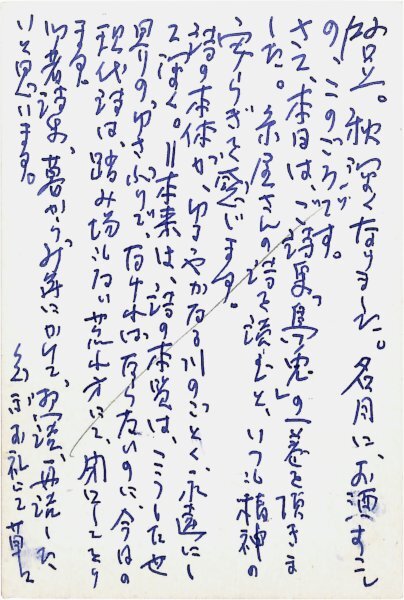 拝呈。秋深くなりました。名月に、お酒すこし
の、このごろです。
さて、本日は、ご詩集『烏兎』の一巻を頂きま
した。糸屋さんの詩を読むと、いつも精神の
安らぎを感じます。
詩の本体が、ゆるやかなる川のごとく、永遠に
て深く。〃本来は、詩の本質は、こうした
見りの、ゆさぶりで、なければならないのに、今日の
現代詩は、踏み場もない荒れ方にて、閉口しており
ます。
御著詩集、暮から、お正月にかけて、拝読、再読した
いと思います。
まずはお礼まで 草々